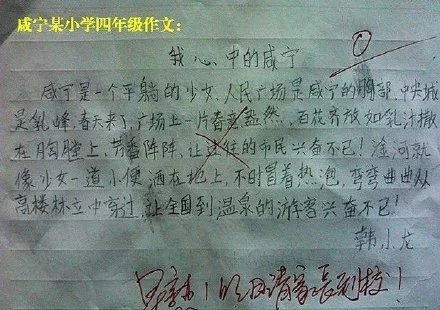 咸宁某小学四年级作文:
我心中的咸宁
咸宁是一个平躺的少女,人民广场是咸宁的胸部,中央城
是乳峰,春天来了,广场上一片春意盎然,百花齐放如乳汁撒
在胸膛上,芳香阵阵,让过往的市民兴奋不已!淦河就
像少女一道小便洒在地上,不时冒着热泡,弯弯曲曲从
高楼林立中穿过,让全国到温泉的游客兴奋不已!
韩小龙
!明日请家长到校!